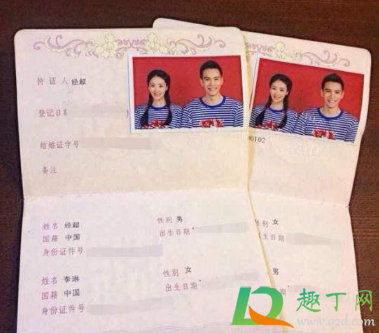 持证人 经超
登记日期
结婚证字号
备注
姓名 经超 性别 男
国籍 中国 出生日期
身份证件号
姓名 李琳 性别 女
国籍 中国 出生日期
身份证件号
00102
女
趣丁网
www.qzd.com